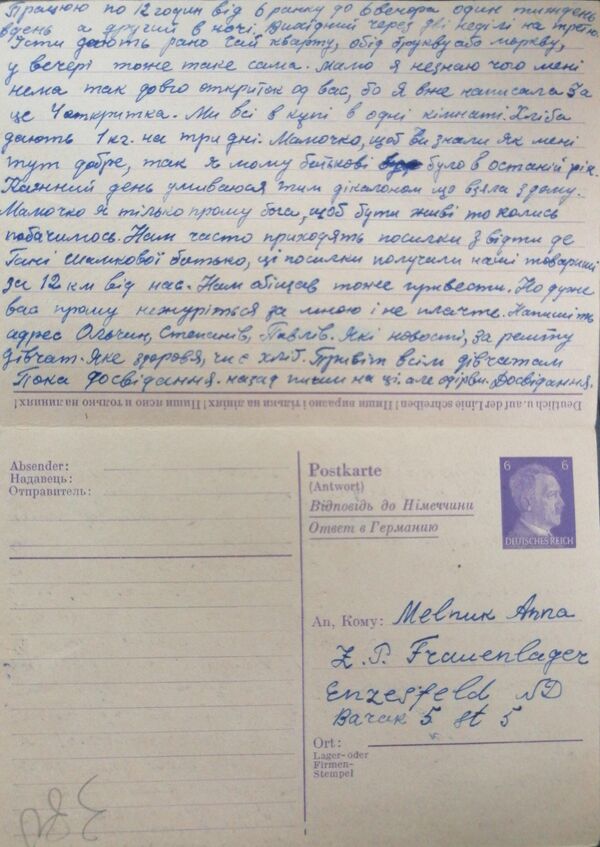 Працюю по 12 годин від 6 ранку до 6 вечора один тиждень
вдень а другий в ночі. Вихідний через дві неділі на третю
Їсти дають рано чай кварту, обід брукву або моркву,
у вечері тоже таке саме. Мамо я незнаю чого мені
нема так довго открыток од вас, бо я вже написала За
це 4 откритка. Ми всі в купі в одні кімнаті. Хліба
дають 1 кг. на три дні. Мамочко, щоб ви знали як мені
тут добре, так як мому батькові було в останій рік.
Каждний день умиваюся тим діколоном що взяла з дому.
Мамочко я тілько прошу бога, щоб бути живі то колись
побачимось. Нам часто приходять посилки з відти де
Гані батько, ці посилки получили наші товариші
за 12 км від нас. Нам обіщав тоже привести. Но дуже
вас прошу нежуріться за мною і не плачте. Напишіть
адрес Ольчин, Степанів, Павлів. Які новості, за решту
дівчат. Яке здоровя, чи є хліб. Привіт всім дівчатам
Пока Досвідання. назад пиши на ці, але Досвідання.
Deutlich u. auf der Linie schreiben! Пиши виразно і тільки на лініях! Пиши ясно и только на линиях!
Absender:
Надавець:
Отправитель:
Postkarte
(Antwort)
Відповідь до Німеччини
Ответ в Германию
6 6
DEUTSCHES REICH
An, Кому: Melnuk Anna
Z. P. Frauenlager
Enzesfeld ND
Барак 5 st 5
Ort:
Lager- oder
Firmen-
Stempel